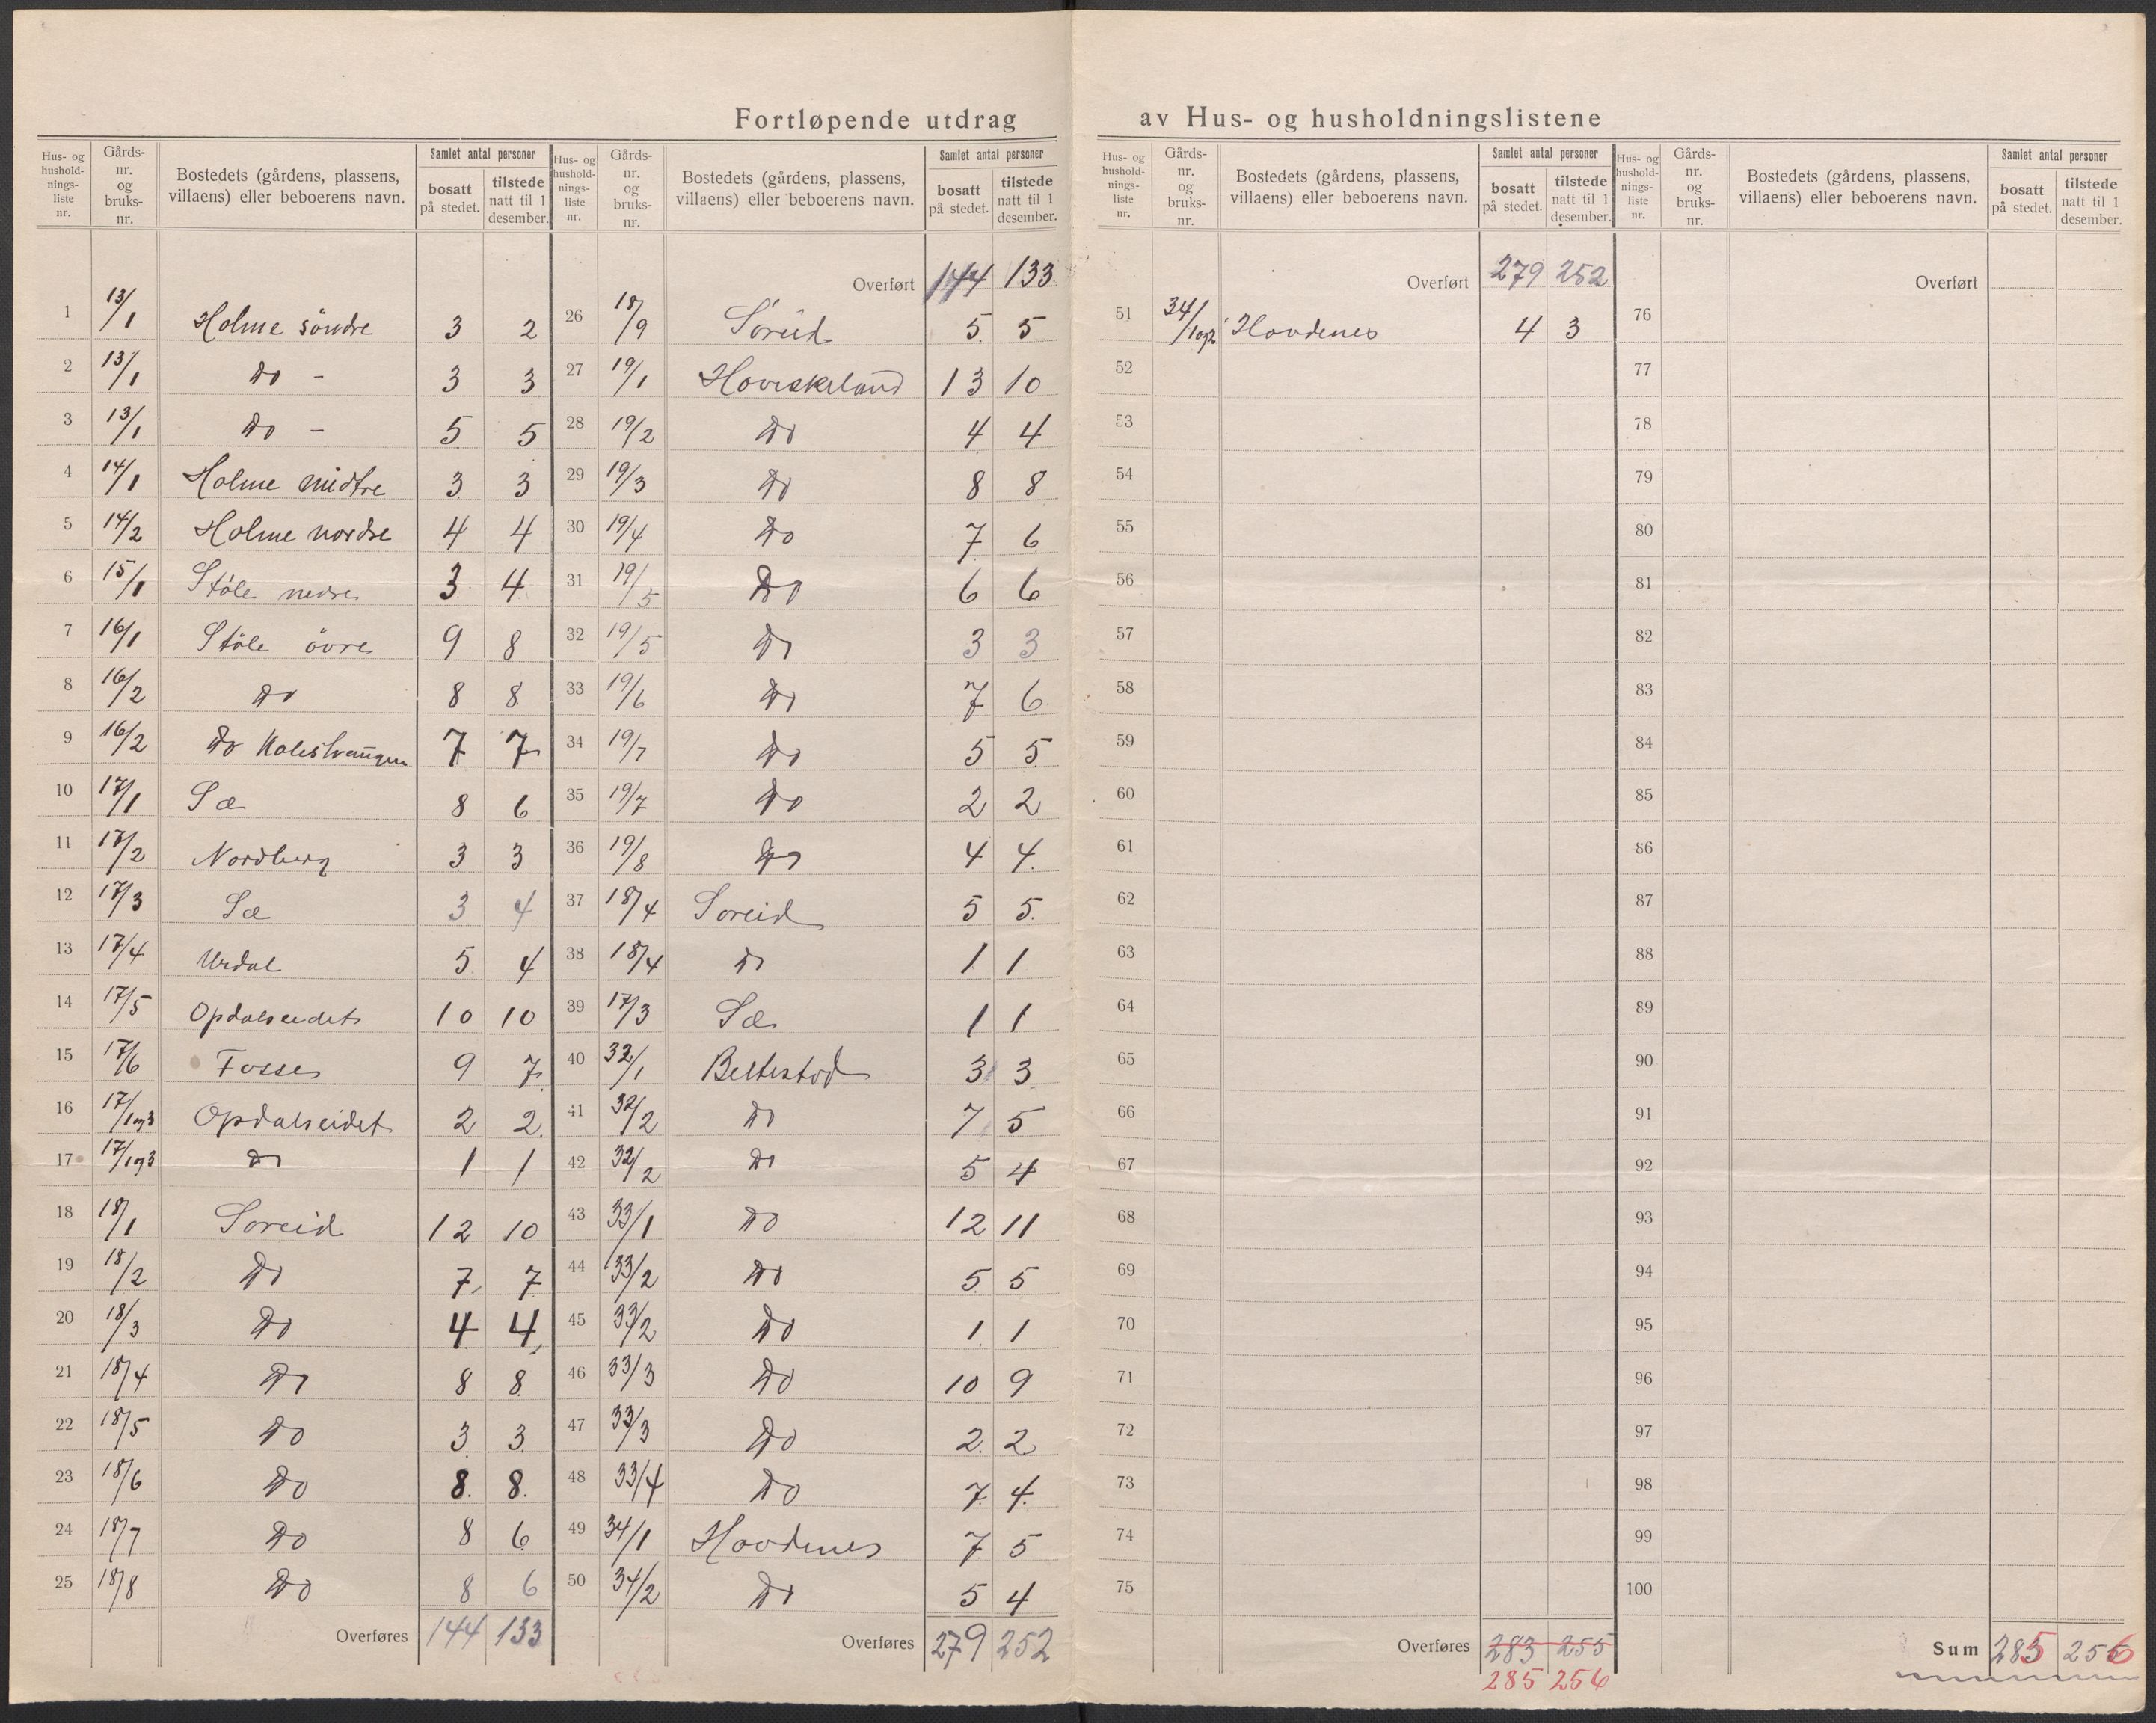 Fortløpende utdrag av Hus- og husholdningslistene
Hus- og hushold-nings-liste nr. Gårds-nr. og bruks-nr. Bostedets (gårdens, plassens, villaens) eller beboerens navn. Samlet antal personer bosatt på stedet. tilstede natt til 1 desember.
1 13/1 Holme söndre 3 2
2 13/1 Do - 3 3
3 13/1 Do - 5 5
4 14/1 Holme midtre 3 3
5 14/2 Holme nordre 4 4
6 15/1 Stöle nedre 3 4
7 16/1 Stöle övre 9 8
8 16/2 Do 8 8
9 16/2 Do 7 7
10 17/1 Sæ 8 6
11 17/2 Nordberg 3 3
12 17/3 Sæ 3 4
13 17/4 Urdal 5 4
14 17/5 Opdalseidet 10 10
15 17/6 Fosse 9 7
16 17/1og3 Opdalseidet 2 2
17 17/1og3 Do 1 1
18 18/1 Soreid 12 10
19 18/2 Do 7 7
20 18/3 Do 4 4
21 18/4 Do 8 8
22 18/5 Do 3 3
23 18/6 Do 8 8
24 18/7 Do 8 6
25 18/8 Do 8 6
Overføres 144 133
Hus- og hushold-nings-liste nr. Gårds-nr. og bruks-nr. Bostedets (gårdens, plassens, villaens) eller beboerens navn. Samlet antal personer bosatt på stedet. tilstede natt til 1 desember.
Overført 144 133
26 18/9 Soreid 5 5
27 19/1 Hoveskeland 13 10
28 19/2 Do 4 4
29 19/3 Do 8 8
30 19/4 Do 7 6
31 19/5 Do 6 6
32 19/5 Do 3 3
33 19/6 Do 7 6
34 19/7 Do 5 5
35 19/7 Do 2 2
36 19/8 Do 4 4
37 18/4 Soreid 5 5
38 18/4 Do 1 1
39 17/3 Sæ 1 1
40 32/1 Beltestod 3 3
41 32/2 Do 7 5
42 32/2 Do 5 4
43 33/1 Do 12 11
44 33/2 Do 5 5
45 33/2 Do 1 1
46 33/3 Do 10 9
47 33/3 Do 2 2
48 33/4 Do 7 4
49 34/1 Hovdenes 7 5
50 34/2 Do 5 4
Overføres 279 252
Hus- og hushold-nings-liste nr. Gårds-nr. og bruks-nr. Bostedets (gårdens, plassens, villaens) eller beboerens navn. Samlet antal personer bosatt på stedet. tilstede natt til 1 desember.
Overført 279 252
51 34/1og2 Hovdenes 4 3
52
53
54
55
56
57
58
59
60
61
62
63
64
65
66
67
68
69
70
71
72
73
74
75
Overføres 283 255
285 256
Hus- og hushold-nings-liste nr. Gårds-nr. og bruks-nr. Bostedets (gårdens, plassens, villaens) eller beboerens navn. Samlet antal personer bosatt på stedet. tilstede natt til 1 desember.
Overført
76
77
78
79
80
81
82
83
84
85
86
87
88
89
90
91
92
93
94
95
96
97
98
99
100
Sum 285 256